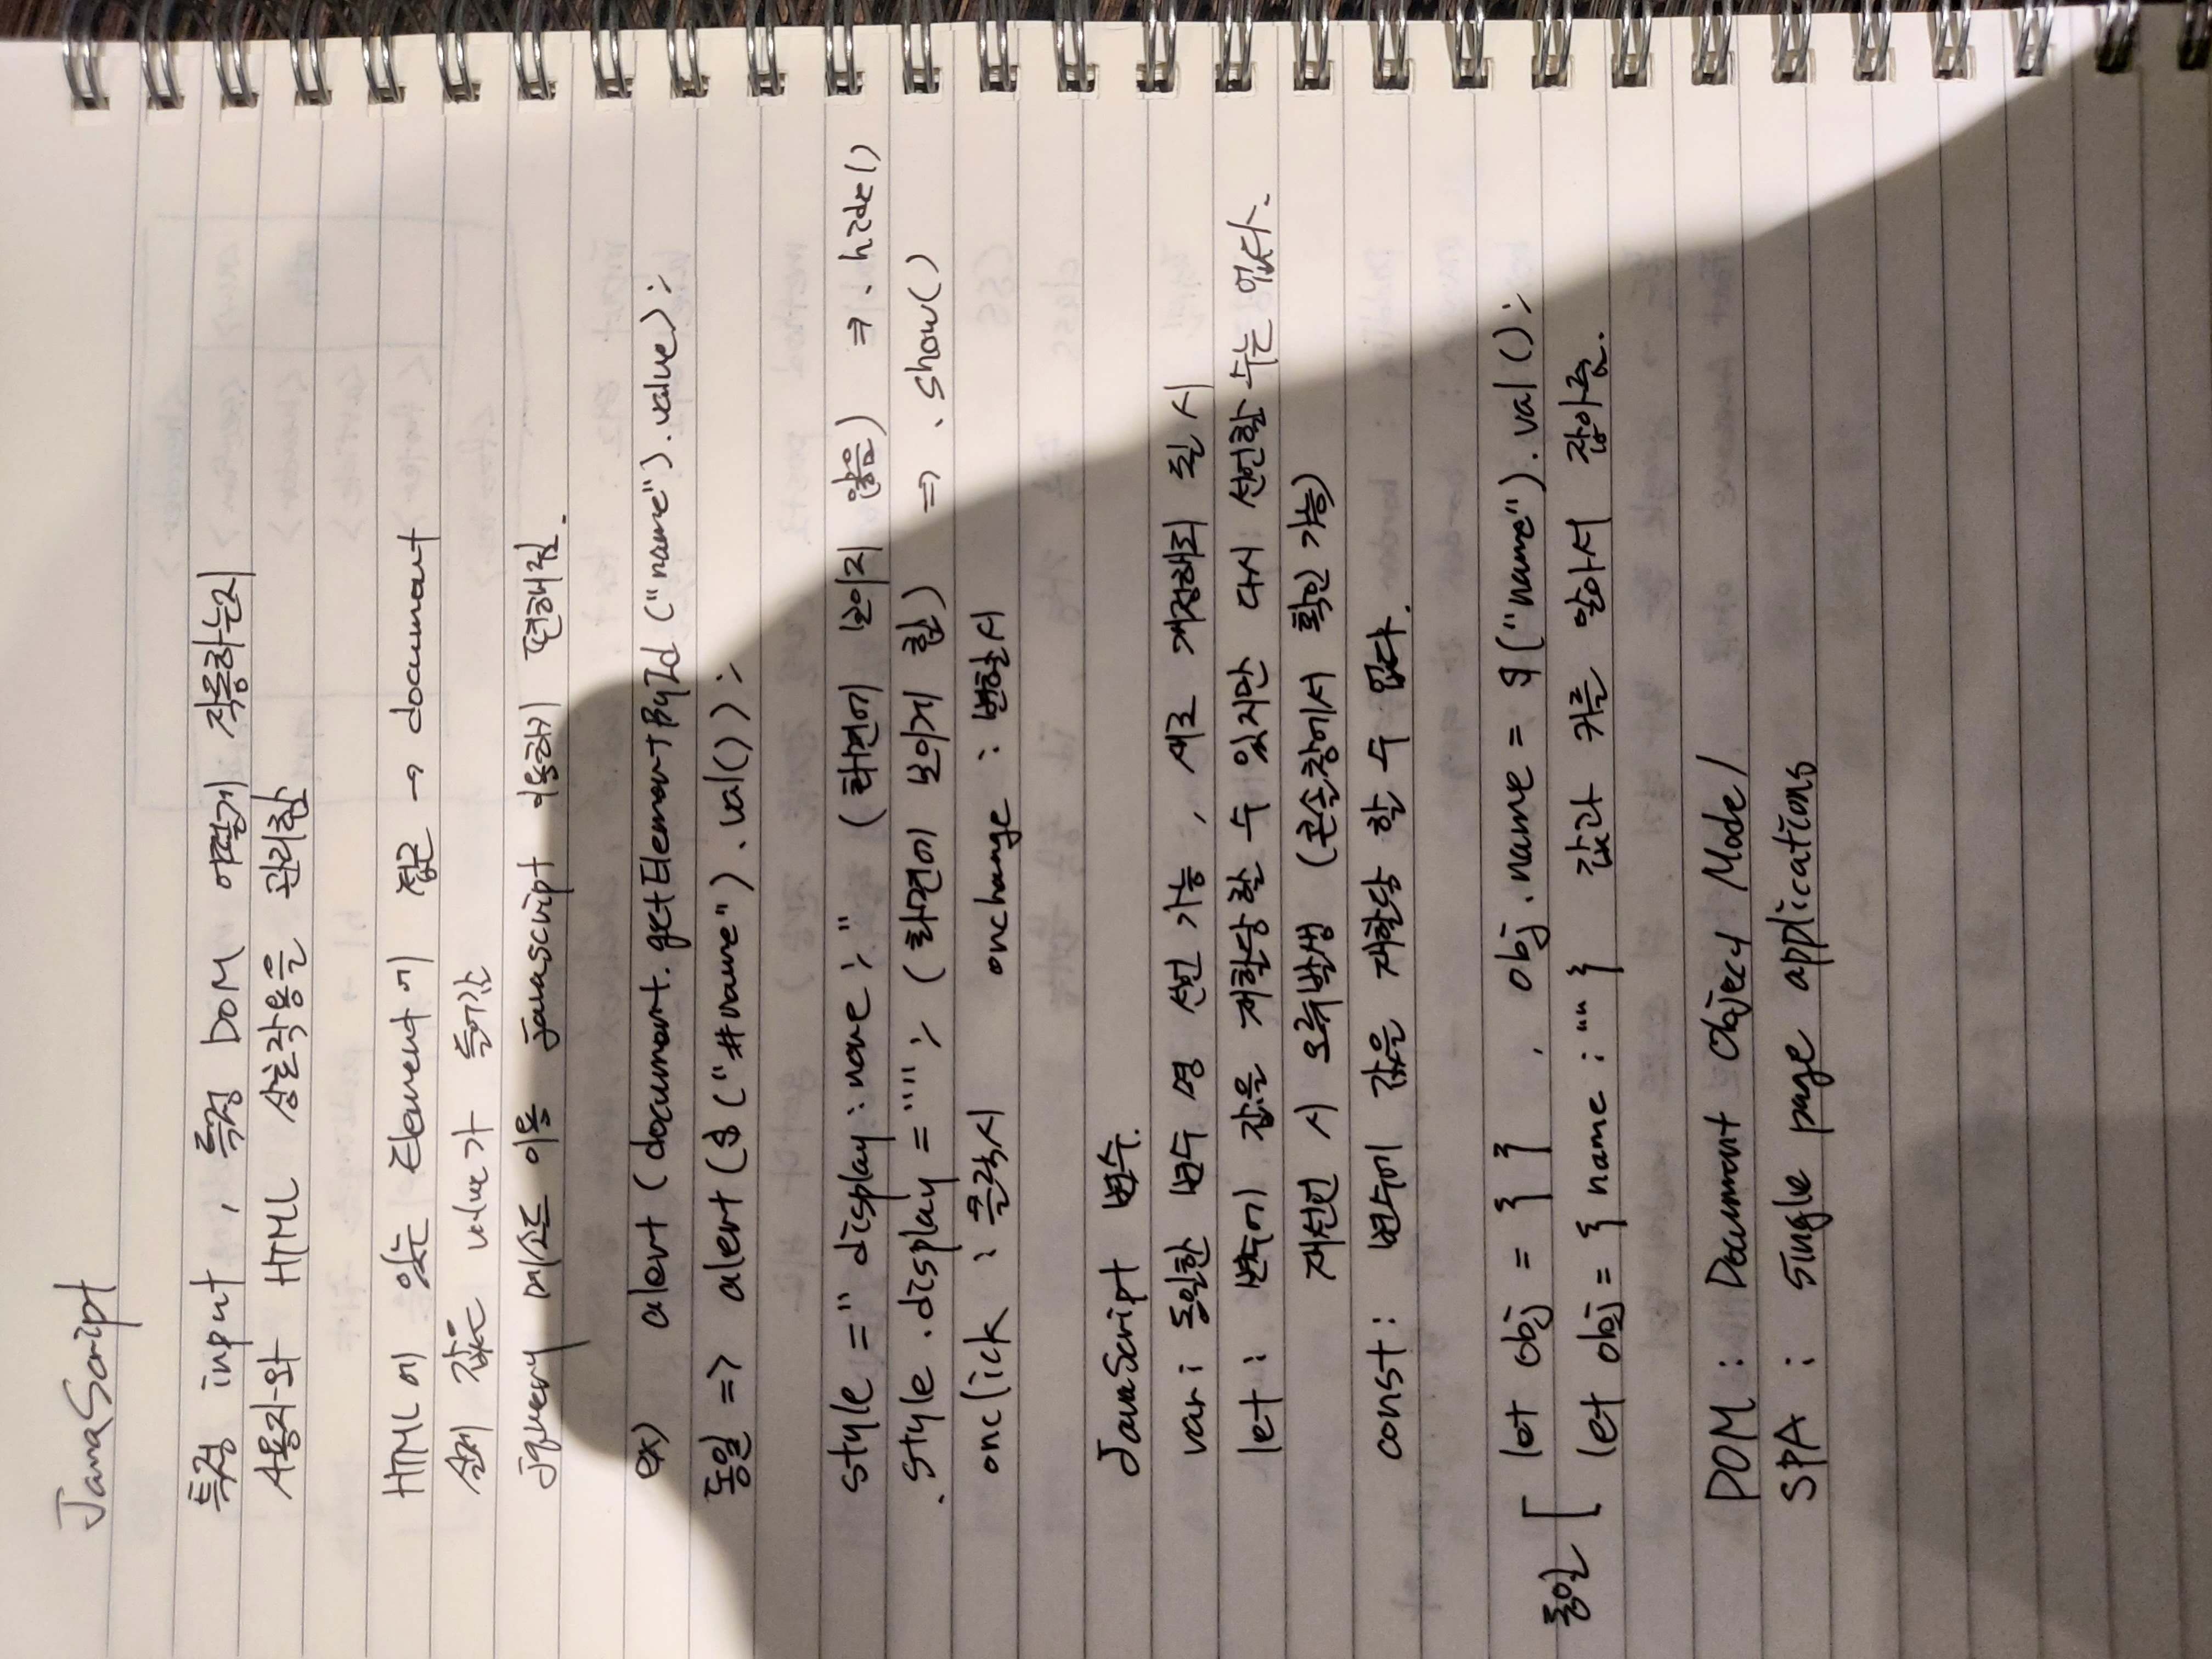 JavaScript
특정 input, 특정 DOM 어떻게 작동하는지
사용자와 HTML 상호작용을 관리함
HTML에 있는 Element에 접근 → document
실제 값은 value가 들어감
jquery 메소드 이용 javascript 이용하기 편해짐.
ex) alert (document.getElementById ("name").value);
동일 => alert ($ ("#name").val());
style =" display : none ; " (화면에 보이지 않음) => .hide()
.style .display = ""; (화면에 보이게 함) => .show()
onclick : 클릭시 onchange : 변할시
JavaScript 변수.
var : 동일한 변수 명 선언 가능, 새로 개정해도 될 시
let : 변수에 값을 재할당할 수 있지만 다시 선언할 수는 없다.
재선언 시 오류발생 (콘솔창에서 확인 가능)
const : 변수에 값을 재할당 할 수 없다.
let obj = { } , obj.name = $("name").val();
동일
let obj = { name : "" } 값과 키를 알아서 잡아줌.
DOM : Document Object Model
SPA : single page applications